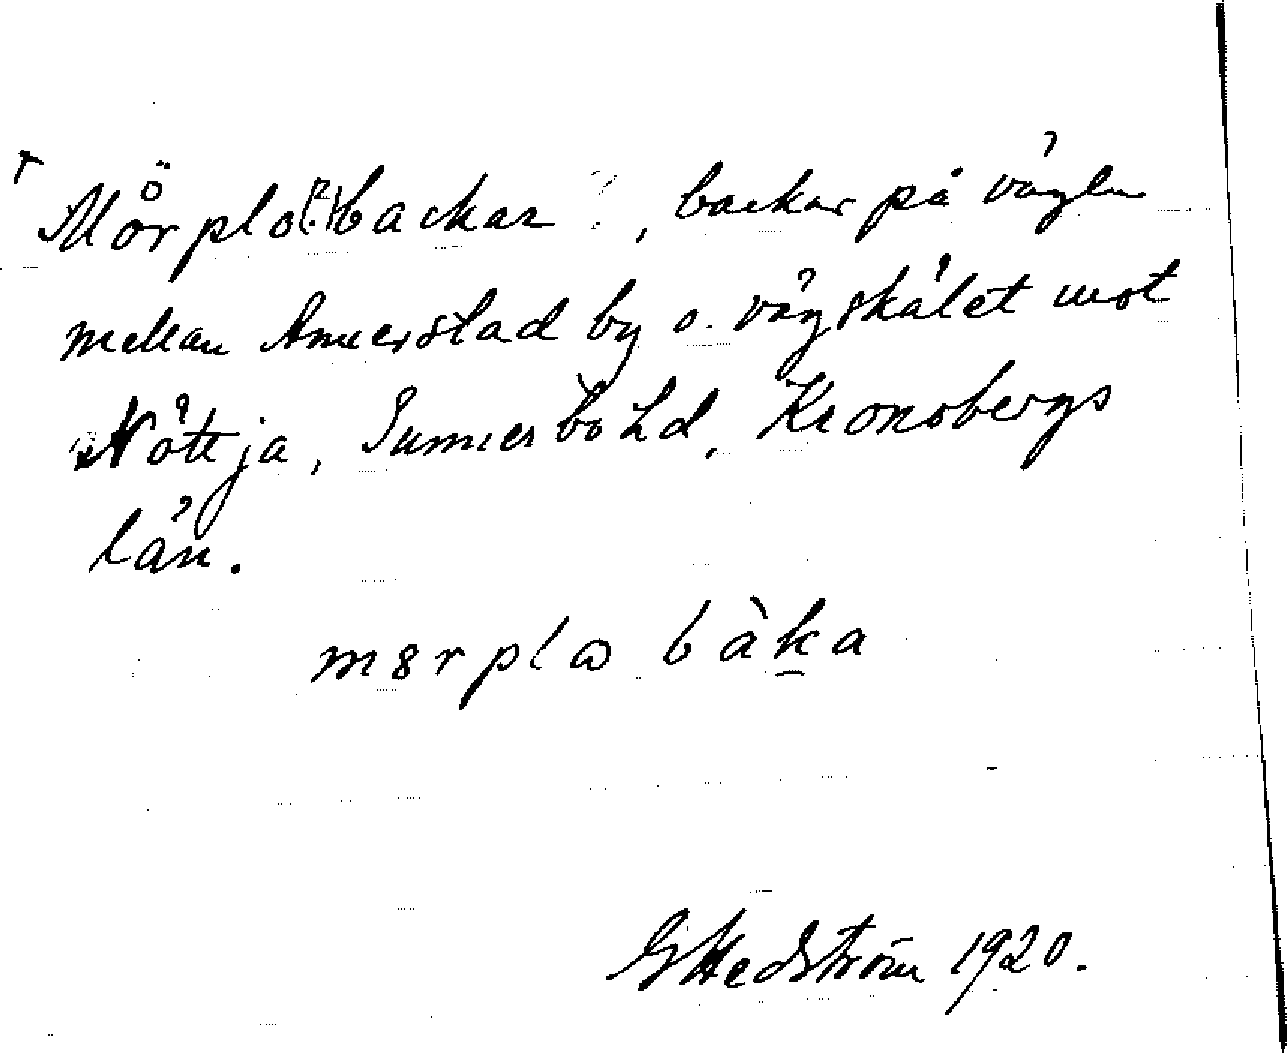 Mörplo[?]backar, backar på vägen
mellan Annerstad by o. vägskälet mot
Nöttja, Sunnerbo hd, Kronobergs
län.
mɞrplɷ bàka
G Hedström 1920.